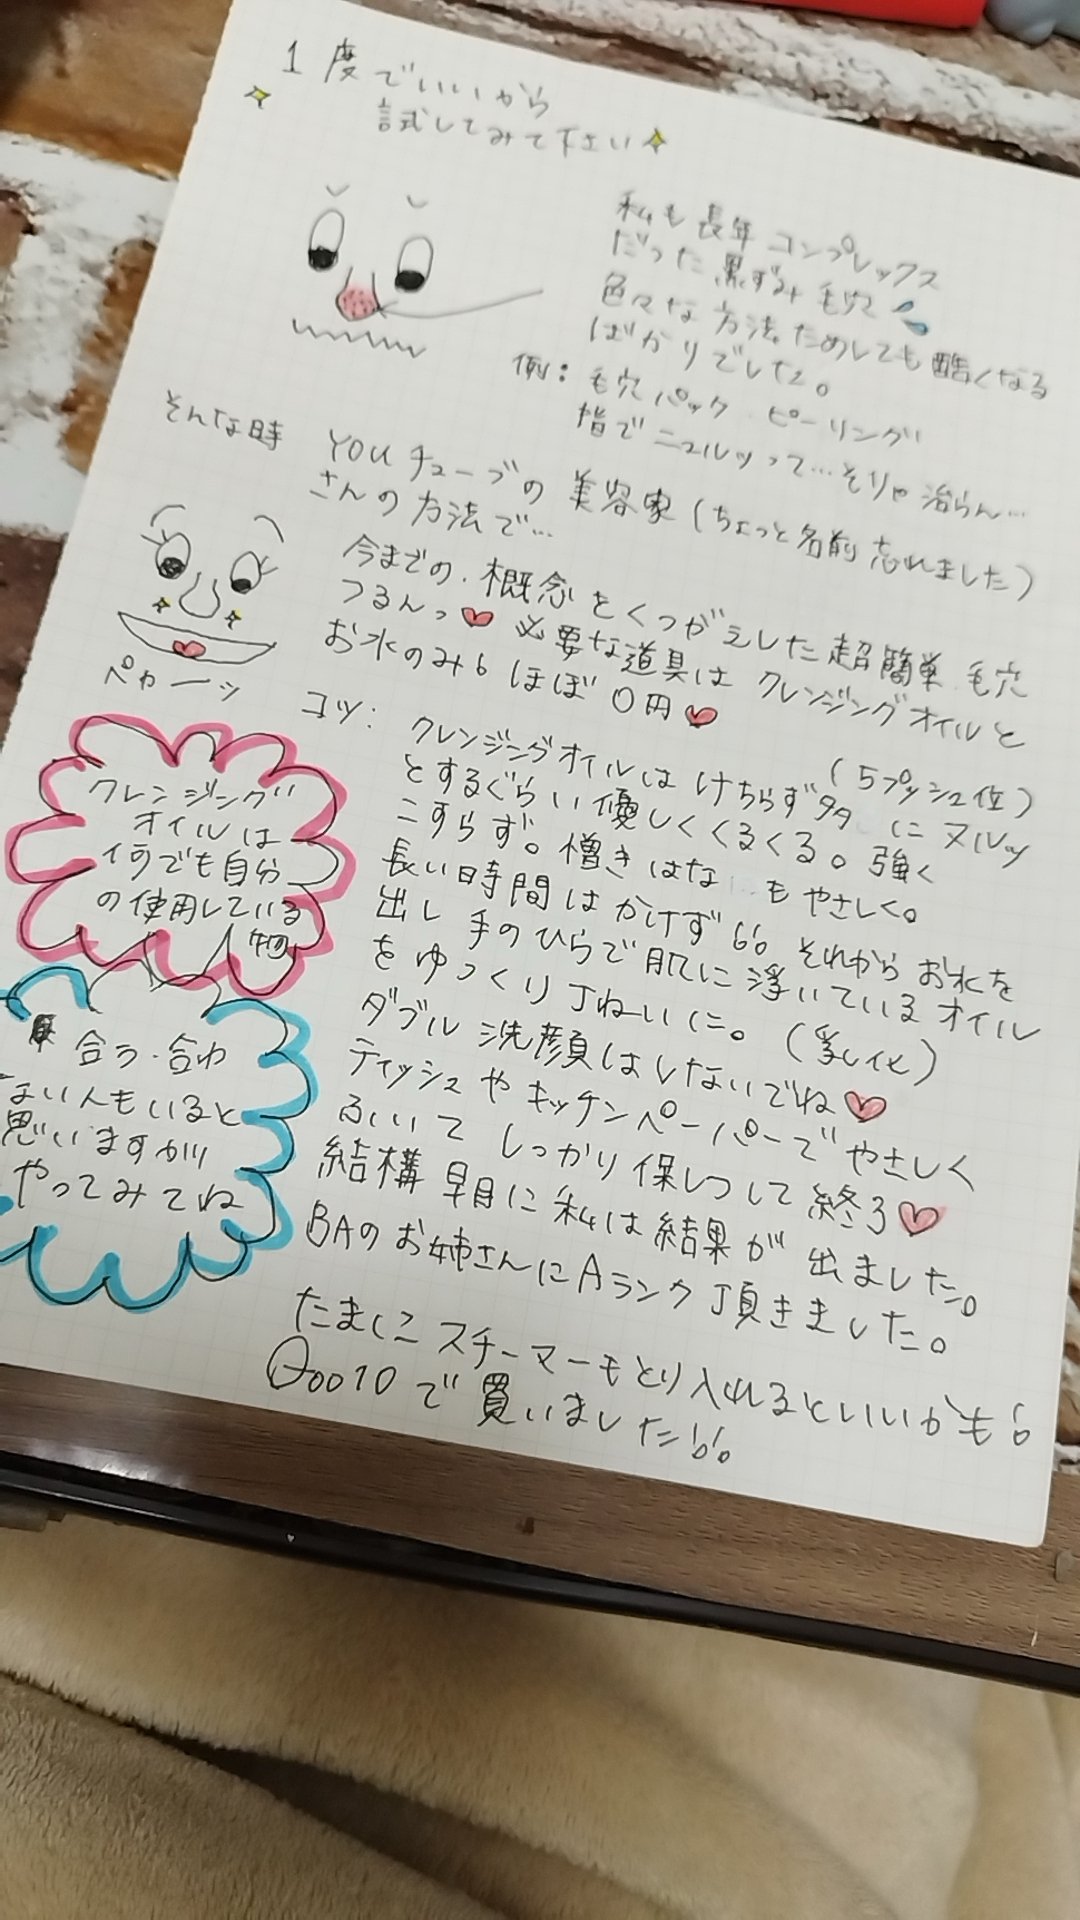 1度でいいから
試してみて下さい
私も長年コンプレックス
だった黒ずみ毛穴
色々な方法ためしても酷くなる
ばかりでした。
例：毛穴パック・ピーリング
指でニュルッって…そりゃ治らん…
そんな時
YOUチューブの美容家(ちょっと名前忘れました)
さんの方法で…
今までの・概念をくつがえした超簡単毛穴
つるんっ♥必要な道具はクレンジングオイルと
お水のみ!!ほぼ0円♥
ペカーッ
コツ：クレンジングオイルはけちらず多 に ヌルッ
(5プッシュ位)
とするぐらい優しくくるくる。強く
こすらず。憎きはな もやさしく。
長い時間はかけず!!。それからお水を
出し手のひらで肌に浮いているオイル
をゆっくり丁ねいに。(乳化)
ダブル洗顔はしないでね♥
ティッシュやキッチンペーパーでやさしく
ふいてしっかり保しつして終了♥
結構早目に私は結果が出ました。
BAのお姉さんにAランク頂きました。
たまにスチーマーもとり入れるといいかも!!
Qoo10で買いました!!。
クレンジング
オイルは
何でも自分
の使用している
物
合う・合わ
ない人もいると
思いますが!!
やってみてね